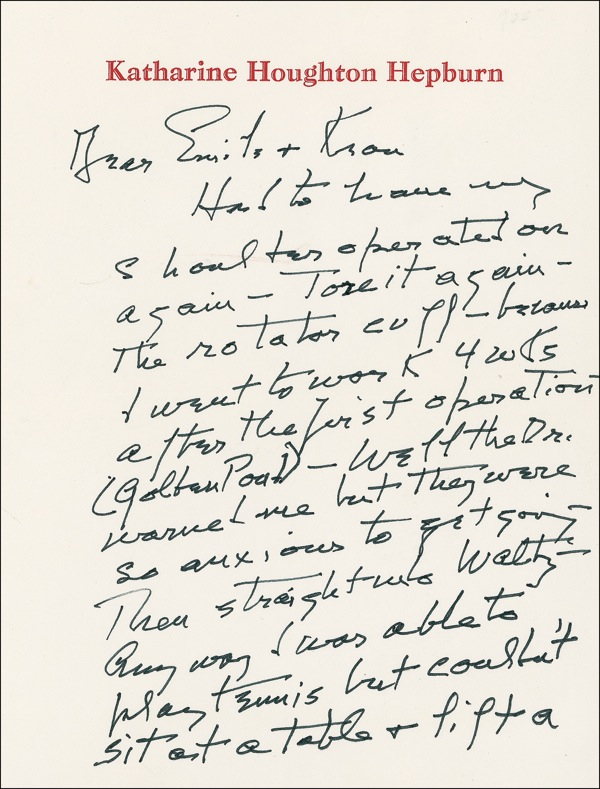 Katharine Houghton Hepburn
Dear Emily +
Had to have my
shoulder operated on
again — Tore it again —
The rotator cuff — because
I went to work 4 wks
after the first operation
(Golden Pond) — Well the Dr.
warned me but they were
so anxious to get going —
Then straight into Waltz —
Any way I was able to
play tennis but couldn't
sit at a table + lift a